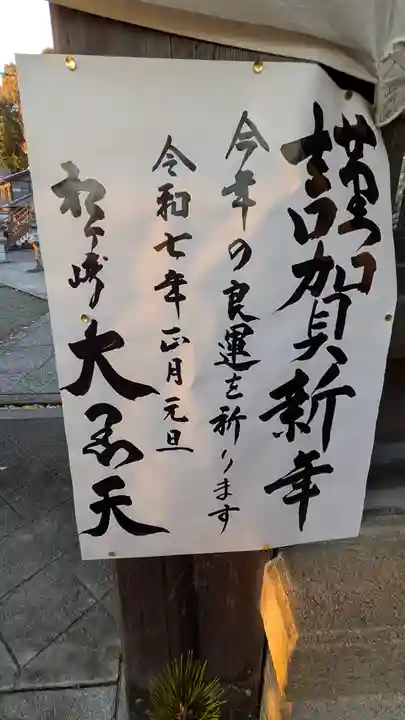 謹賀新年
今年の良運を祈ります
令和七年正月元旦
ヶ崎
大黒天